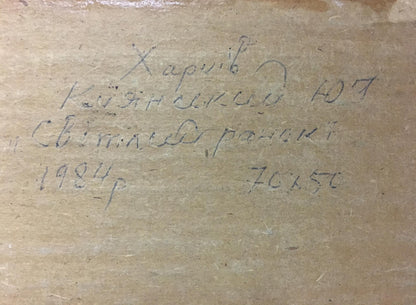 Харків
Куянський Ю Г
"Світлий ранок"
1984р 70х50